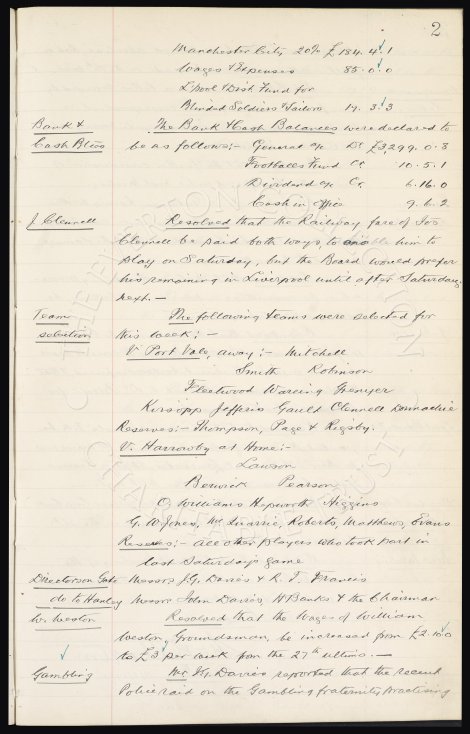 2
Manchester City 20% £ 184. 4. 1
Wages & Expenses 85. 0. 0
L'pool & Dist Fund for
Blinded Soldiers & Sailors 19. 3. 3
Bank & The Bank & Cash Balances were declared to
Cash Blces be as follows:- General a/c Dr £3299. 0. 8
Footballs Fund Cr 10. 5. 1
Dividend a/c Cr. 6. 16. 0
Cash in office 9. 6. 2
J Clennell Resolved that the Railway fare of Jos
Clennell be paid both ways to enable him to
play on Saturday, but the Board would prefer
his remaining in Liverpool until after Saturday
next. —
Team The following teams were selected for
selection this week: —
V Port Vale, away:- Mitchell
Smith Robinson
Fleetwood Wareing Grenyer
Kirsopp Jefferis Gault Clennell Donnachie
Reserves:- Thompson, Page & Rigsby.
V. Harrowby at Home:-
Lawson
Berwick Pearson
O, Williams Hepworth Higgins
G. W Jones, Roberts, Matthews, Evans
Reserves:- all other players who took part in
last Saturday's game
Directors on Gate Messrs J. G. Davies & R. T. Francis
do to Hanley Messrs John Davies, H Banks & the Chairman
W. Weston Resolved that the Wages of William
Weston, Groundsman, be increased from £2. 10. 0
to £3 per week from the 27th ultimo. —
Gambling Mr J. G. Davies reported that the recent
Police raid on the Gambling fraternity practising
THE EVERTON
CHARITABLE TRUST